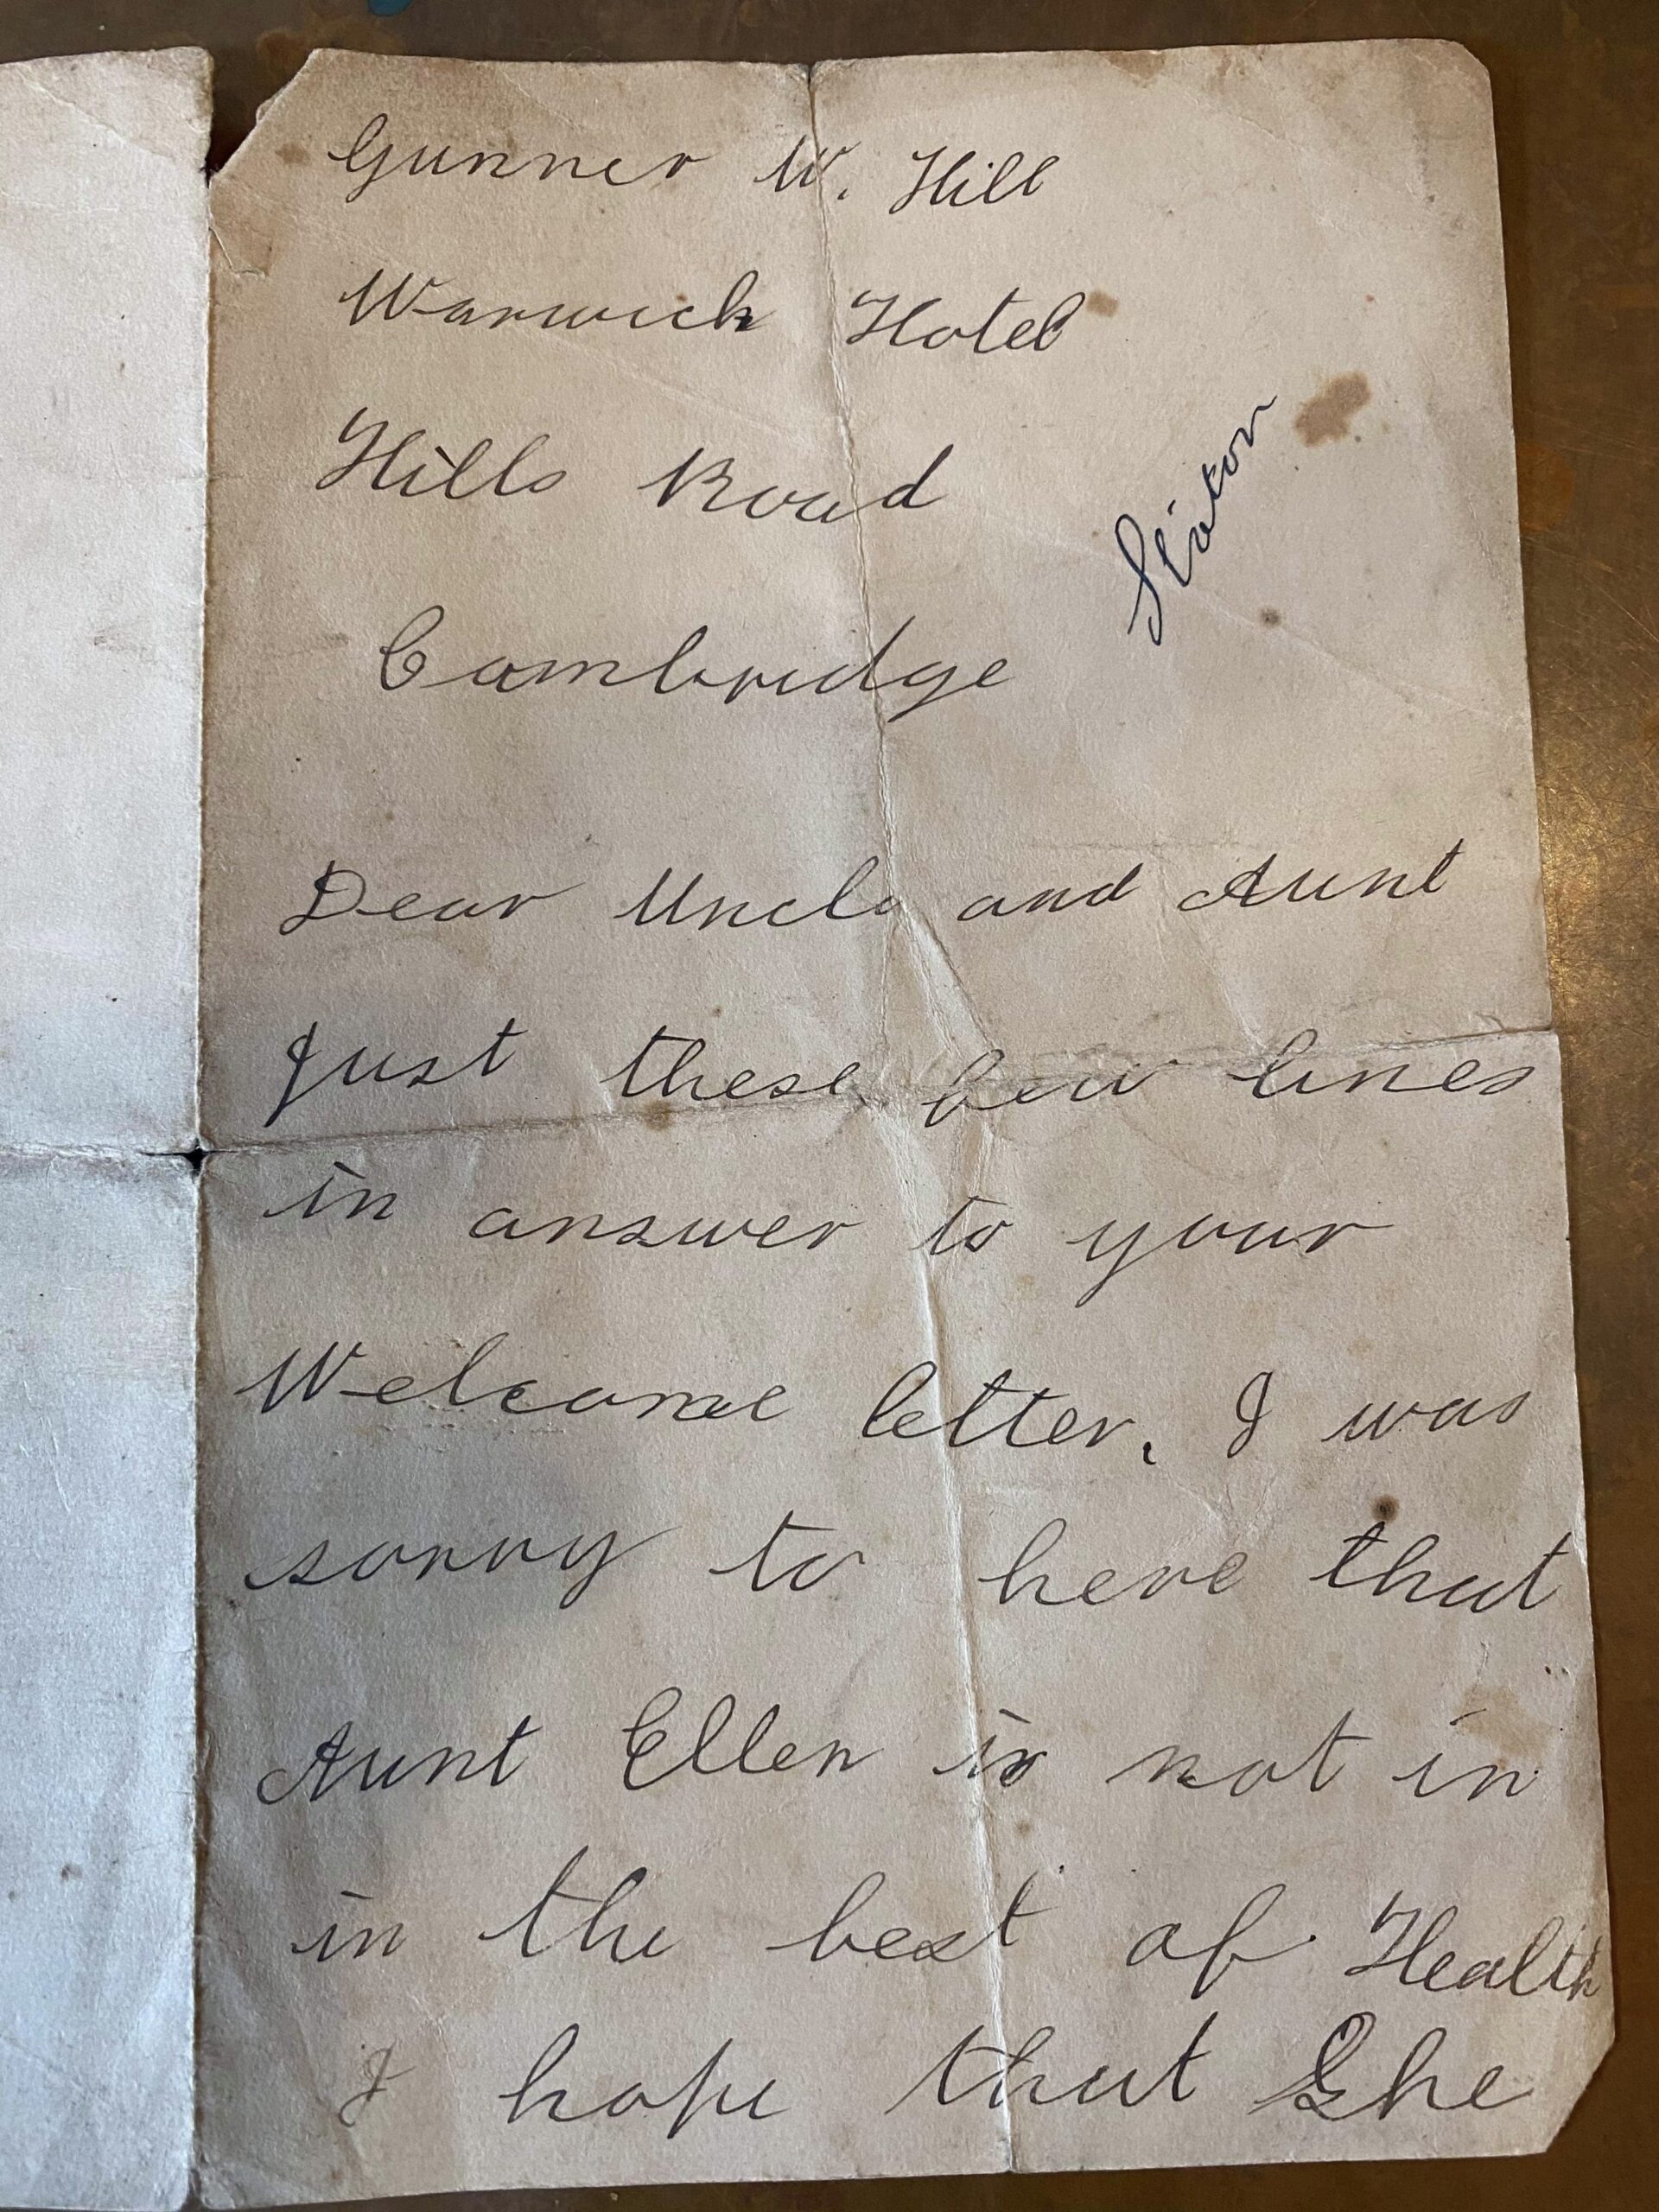 Gunner W. Hill
Warwick Hotel
Hills Road
Cambridge
Dear Uncle and Aunt
Just these few lines
in answer to your
Welcome letter. I was
sorry to here that
Aunt Ellen is not in
in the best of Health
I hope that She